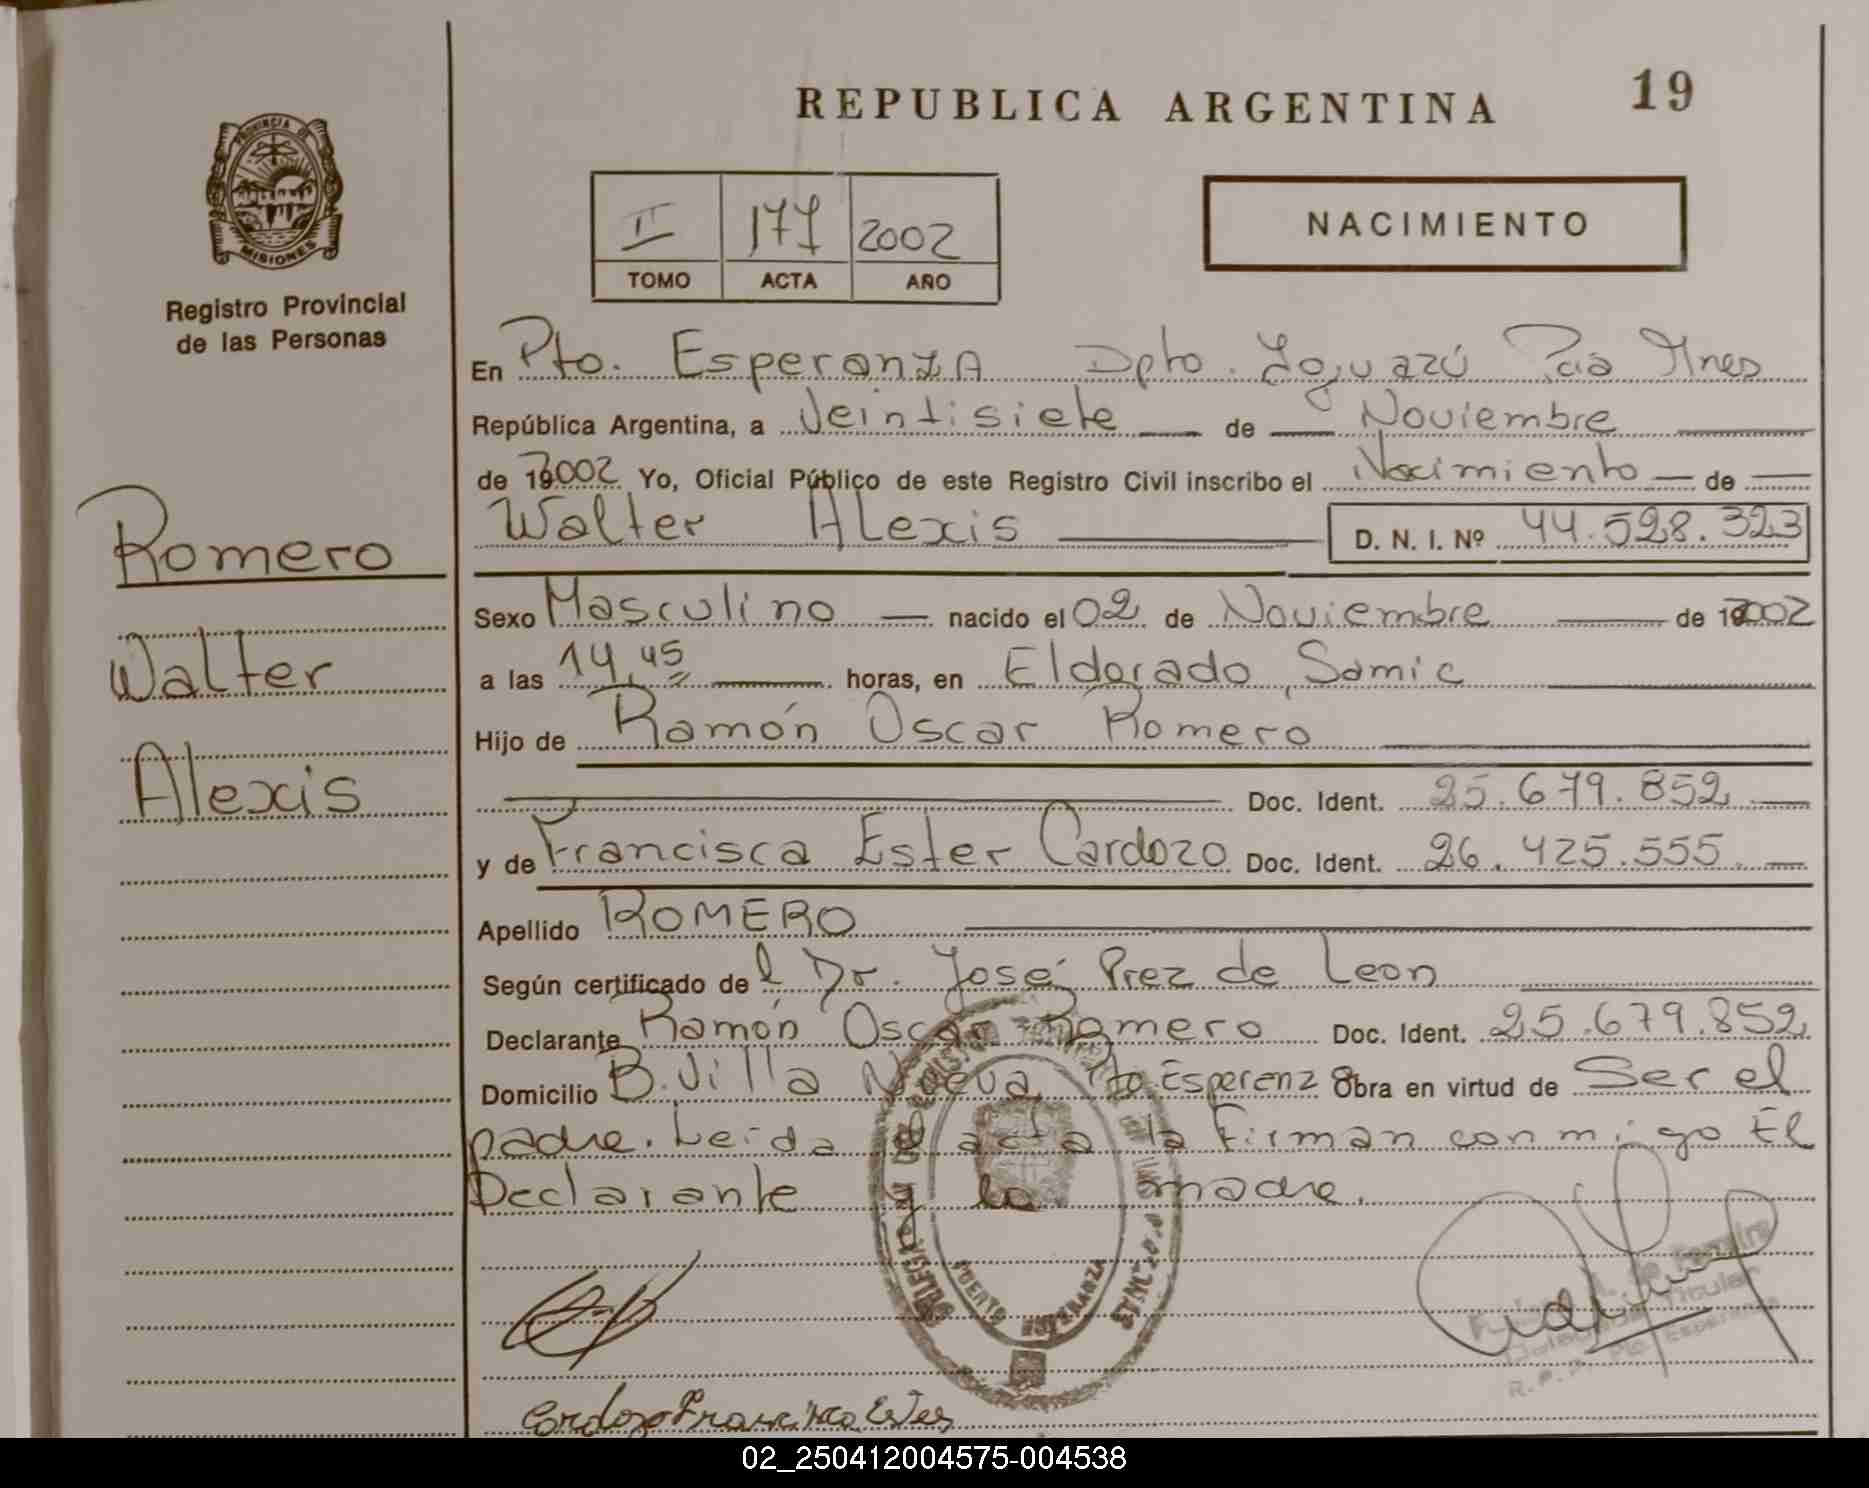 REPUBLICA ARGENTINA
19
PROVINCIA DE
MISIONES
Registro Provincial
de las Personas
II 177 2002
TOMO ACTA AÑO
NACIMIENTO
En Pto. Esperanza Dpto. Iguazú Pcia Mnes
República Argentina, a Veintisiete de Noviembre
de 192002 Yo, Oficial Público de este Registro Civil inscribo el Nacimiento de
Walter Alexis D. N. I. Nº 44.528.323
Romero
Walter
Alexis
Sexo Masculino nacido el 02 de Noviembre de 192002
a las 14,45 horas, en Eldorado, Samic
Hijo de Ramón Oscar Romero
Doc. Ident. 25.679.852
y de Francisca Ester Cardozo Doc. Ident. 26.425.555
Apellido ROMERO
Según certificado del Dr. José Prez de Leon
Declarante Ramón Oscar Romero Doc. Ident. 25.679.852
Domicilio B. Villa Nueva Pto. Esperanza Obra en virtud de Ser el
padre. Leida el acta la Firman conmigo El
Declarante y la madre.
PUERTO ESPERANZA
Cardozo Francisca Ester
R. P. P. Pto Esperanza
02_250412004575-004538